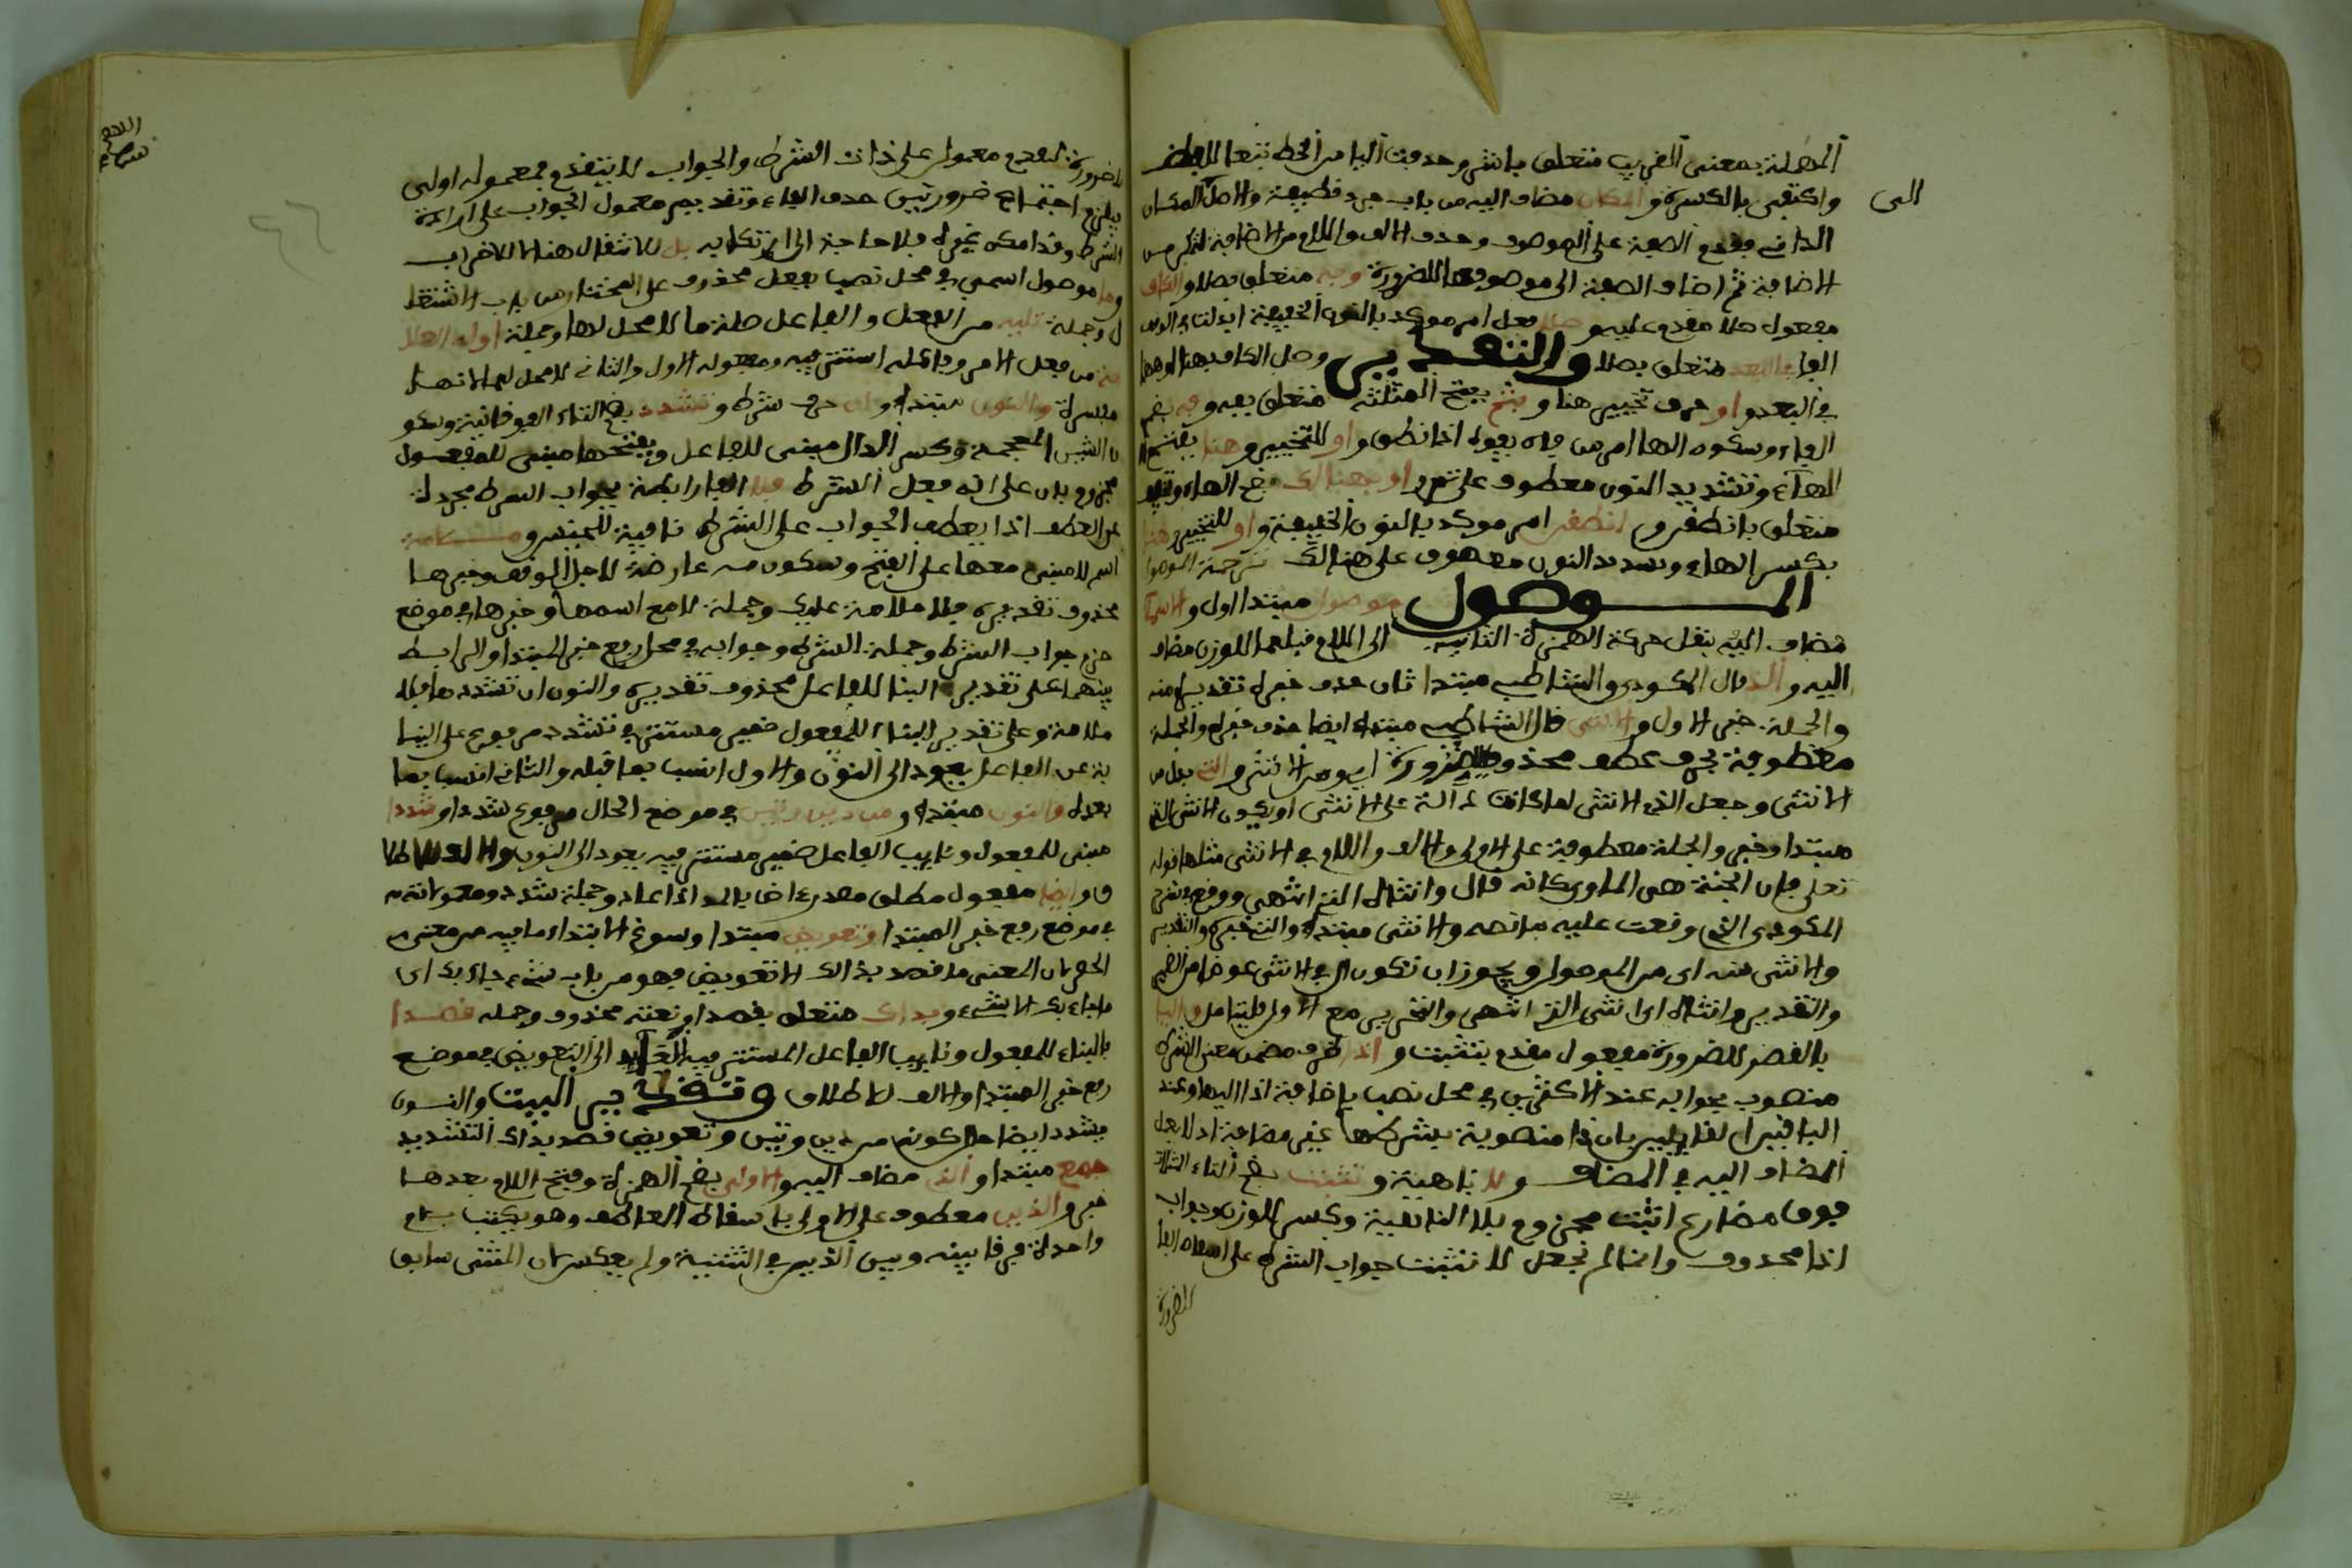 المهملة بمعنى القريب متعلق باشر وحذفت اليا من الخط تبعا للفظ
واكتفى بالكسرة والمكان مضاف اليه من باب جرد قطيفة والاصل المكان
الى
الداني فقدم الصفة على الموصوف وحذف الالف واللام من الاضافة
الاضافة ثم اضاف الصفة الى موصوفها للضرورة وبه متعلق بصلا والكاف
مفعول صلا مقدم عليه وصلا فعل امر موكد بالنون الخفيفة ابدلت في الوقف
الفا في البعد متعلق بصلا والتقدير وصل الكاف بهنا او ههنا
في البعد او حرف تخيير هنا وبثم بفتح المثلثة متعلق بفه وفه بضم
الفاء وسكون الها امر من فاه يفوه اذا نطق واو للتخيير وهنا بفتح
الهاء وتشديد النون معطوف على ثم او بهنالك بضم الهاء
متعلق بانطقن وانطقن امر موكد بالنون الخفيفة واو للتخيير وهنا
بكسر الهاء وتشديد النون معطوف على هنالك ترجمة الموصول
المــوصول موصول مبتدا اول والاسما
مضاف اليه بنقل حركة الهمزة الثانية الى اللام قبلها للوزن مضاف
اليه والذ قال المكودي والشاطبي مبتدا ثان حذف خبره تقديره منه
والجملة خبر الاول والانثى قال الشاطبي مبتدا ايضا حذف خبره والجملة
معطوفة بحرف عطف محذوف للضرورة اي ومن الانثى والتي بدل من
الانثى وجعل التي الانثى لما كانت دالة على الانثى او يكون الانثى التي
مبتدا وخبر والجملة معطوفة على الاولى والالف واللام في الانثى مثلها قوله
تعلى فان الجنة هي الماوى كانه قال وانثاه التي انتهى ووقع في شرح
المكودي الذي وقعت عليه ما نصه والانثى مبتدا والتي خبره والتقدير
والانثى منه اي من الموصول ويجوز ان تكون ال في الانثى عوضا من الضمير
والتقدير وانثاه اي انثى الذي انتهى والتحرير مع الاول فليتامل واليا
بالقصر للضرورة مفعول مقدم بتثبت واذا ظرف مضمن معنى الشرط
منصوب بجوابه عند الاكثرين في محل نصب باضافة اذا اليها وعند
الباقين لقايليين بان اذا منصوبة بشرطها غير مضافة اذ لا يعمل
المضاف اليه في المضاف ولا ناهية وتثبت بضم التاء المثناة
فوق مضارع اثبت مجزوم بلا الناهية وكسر للوزن وجواب
اذا محذوف وانما لم نجعل لا تثبت جواب الشرط على اسقاط الفا
للضرورة
للضرورة لتقدم معموله على ذات الشرط والجواب لا يتقدم فمعموله اولى
يلزم اجتماع ضرورتين حذف الفاء وتقديم معمول الجواب على اداة
الشرط وقد امكن غيره فلا حاجة الى ارتكابه بل للانتقال هنا لا للاضراب
وما موصول اسمي في محل نصب بفعل محذوف على المختار من باب الاشتغا
ل وجملة تليه من الفعل والفاعل صلة ما لا محل لها وجملة اوله العلا
مة من فعل الامر وفاعله استتر فيه ومفعوله الاول والثاني لا محل لها لانها
مفسرة والنون مبتدا وان حرف شرط وتشدد بضم التاء الفوقانية وسكو
ن الشين المعجمة وكسر الدال مبني للفاعل وبفتحها مبني للمفعول
مجزوم بان على انه فعل الشرط فلا الفا رابطة لجواب الشرط مجردة
عن العطف اذ لا يعطف الجواب على الشرط نافية للجنس وملامة
اسم لا مبني معها على الفتح وسكونه عارض لاجل الوقف وخبرها
محذوف تقديره فلا ملامة عليك وجملة لا مع اسمها وخبرها في موضع
جزم جواب الشرط وجملة الشرط وجوابه في محل رفع خبر المبتدا والرابط
بينهما على تقدير البنا للفاعل محذوف تقديره والنون ان تشددها فلا
ملامة وعلى تقدير البناء للمفعول ضمير مستتر في تشدد مرفوع على النيا
بة عن الفاعل يعود الى النون والاول انسب بما قبله والثاني انسب بما
بعده والنون مبتدا ومن ذين وتين في موضع الحال مرفوع شددا وشددا
مبني للمفعول ونايب الفاعل ضمير مستتر فيه يعود الى النون والالف للاطلا
ق وايضا مفعول مطلق مصدر اض بالمد اذا عاد وجملة شدد ومعمولاته
في موضع رفع خبر المبتدا وتعويض مبتدا وسوغ الابتداء ما فيه من معنى
الحصر لان المعنى ما قصد بذالك الا تعويض فهو من باب شيء جاء بك اي
ما جاء بك الا شيء وبذاك متعلق بقصدا ونعته محذوف وجملة قصدا
بالبناء للمفعول ونايب الفاعل المستتر فيه العايد الى التعويض في موضع
رفع خبر المبتدا والالف للاطلاق وتقدير البيت والنون
يشدد ايضا حال كونه من ذين وتين وتعويض قصد بذاك التشديد
جمع مبتدا والذي مضاف اليه والاولى بضم الهمزة وفتح اللام بعدها
خبر والذين معطوف على الاولى باسقاط العاطف وهو يكتب بلام
واحدة فرقا بينه وبين الذين في التثنية ولم يعكس لان المثنى سابق